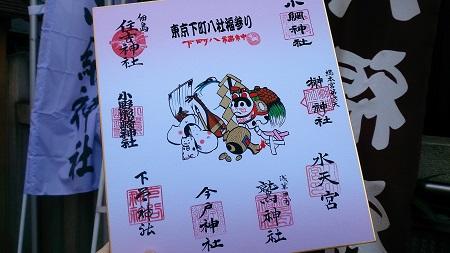 東京下町八社福参り
下町八福神
小網神社
佃島
住吉神社
榊神社
小野照崎神社
水天宮
下谷神社
今戸神社
鷲神社
神社